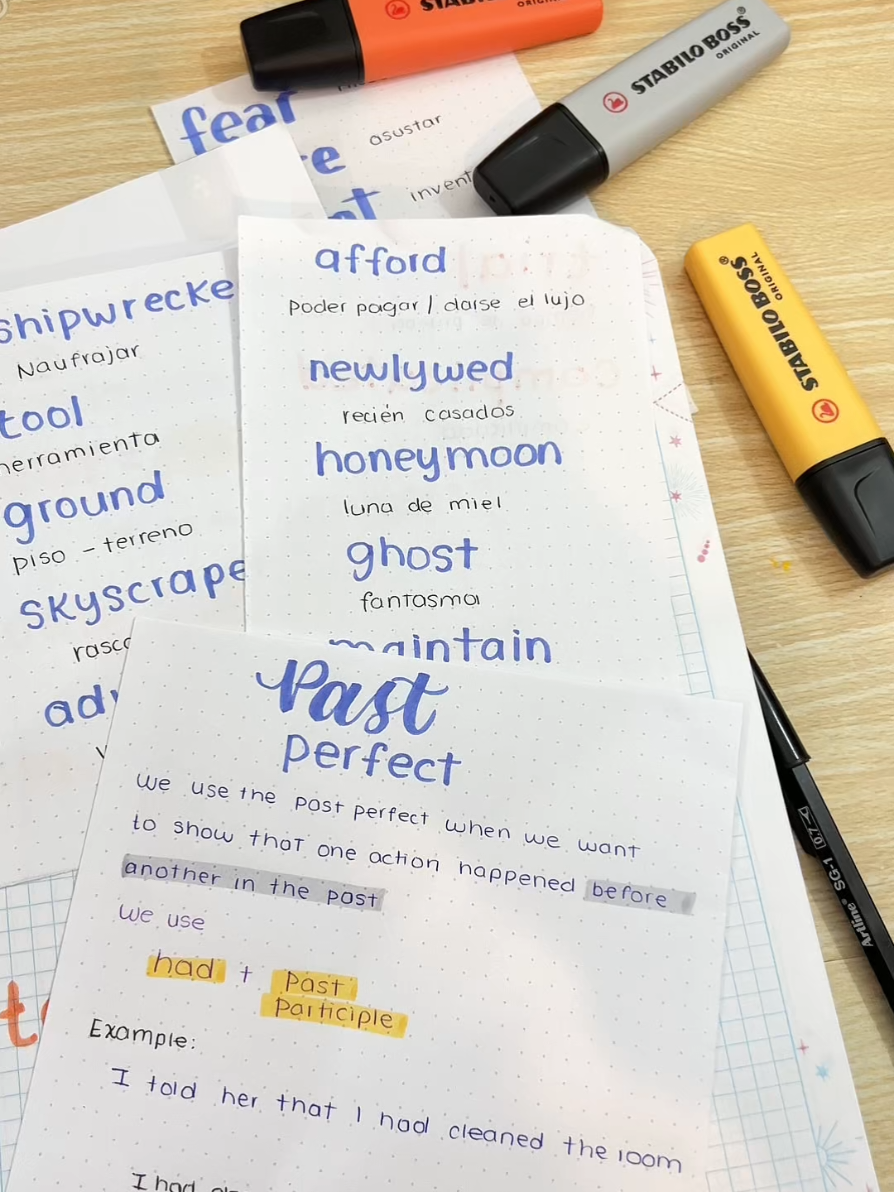 STABILO BOSS
ORIGINAL
STABILO BOSS
ORIGINAL
fear
asustar
invent
shipwrecke
Naufrajar
tool
herramienta
ground
piso - terreno
skyscrape
afford
Poder pagar / darse el lujo
newlywed
recién casados
honeymoon
luna de miel
ghost
fantasma
maintain
Past
perfect
we use the past perfect when we want
to show that one action happened before
another in the past
we use
had + Past
Participle
Example:
I told her that I had cleaned the room
I had
Artline SG-1 0.7